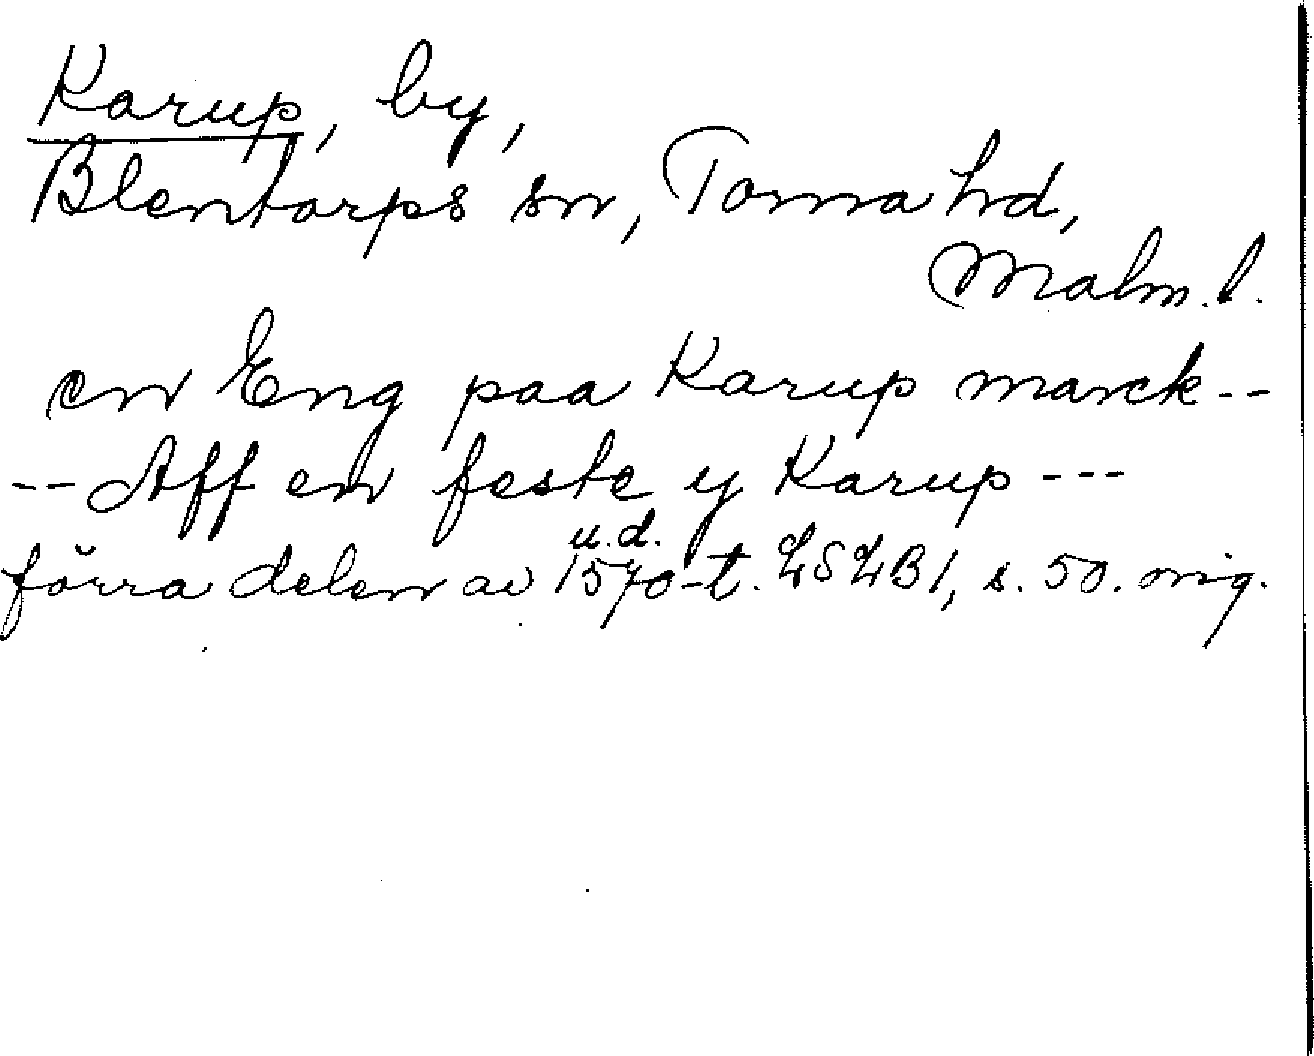 Karup, by,
Blentarps sn, Torna hd,
Malm. l.
en Eng paa Karup marck --
-- Aff en feste y Karup ---
u.d.
förra delen av 1570-t. LSLB1, s. 50. orig.